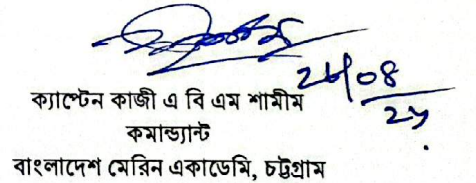 26/08
25
ক্যাপ্টেন কাজী এ বি এম শামীম
কমান্ড্যান্ট
বাংলাদেশ মেরিন একাডেমি, চট্টগ্রাম